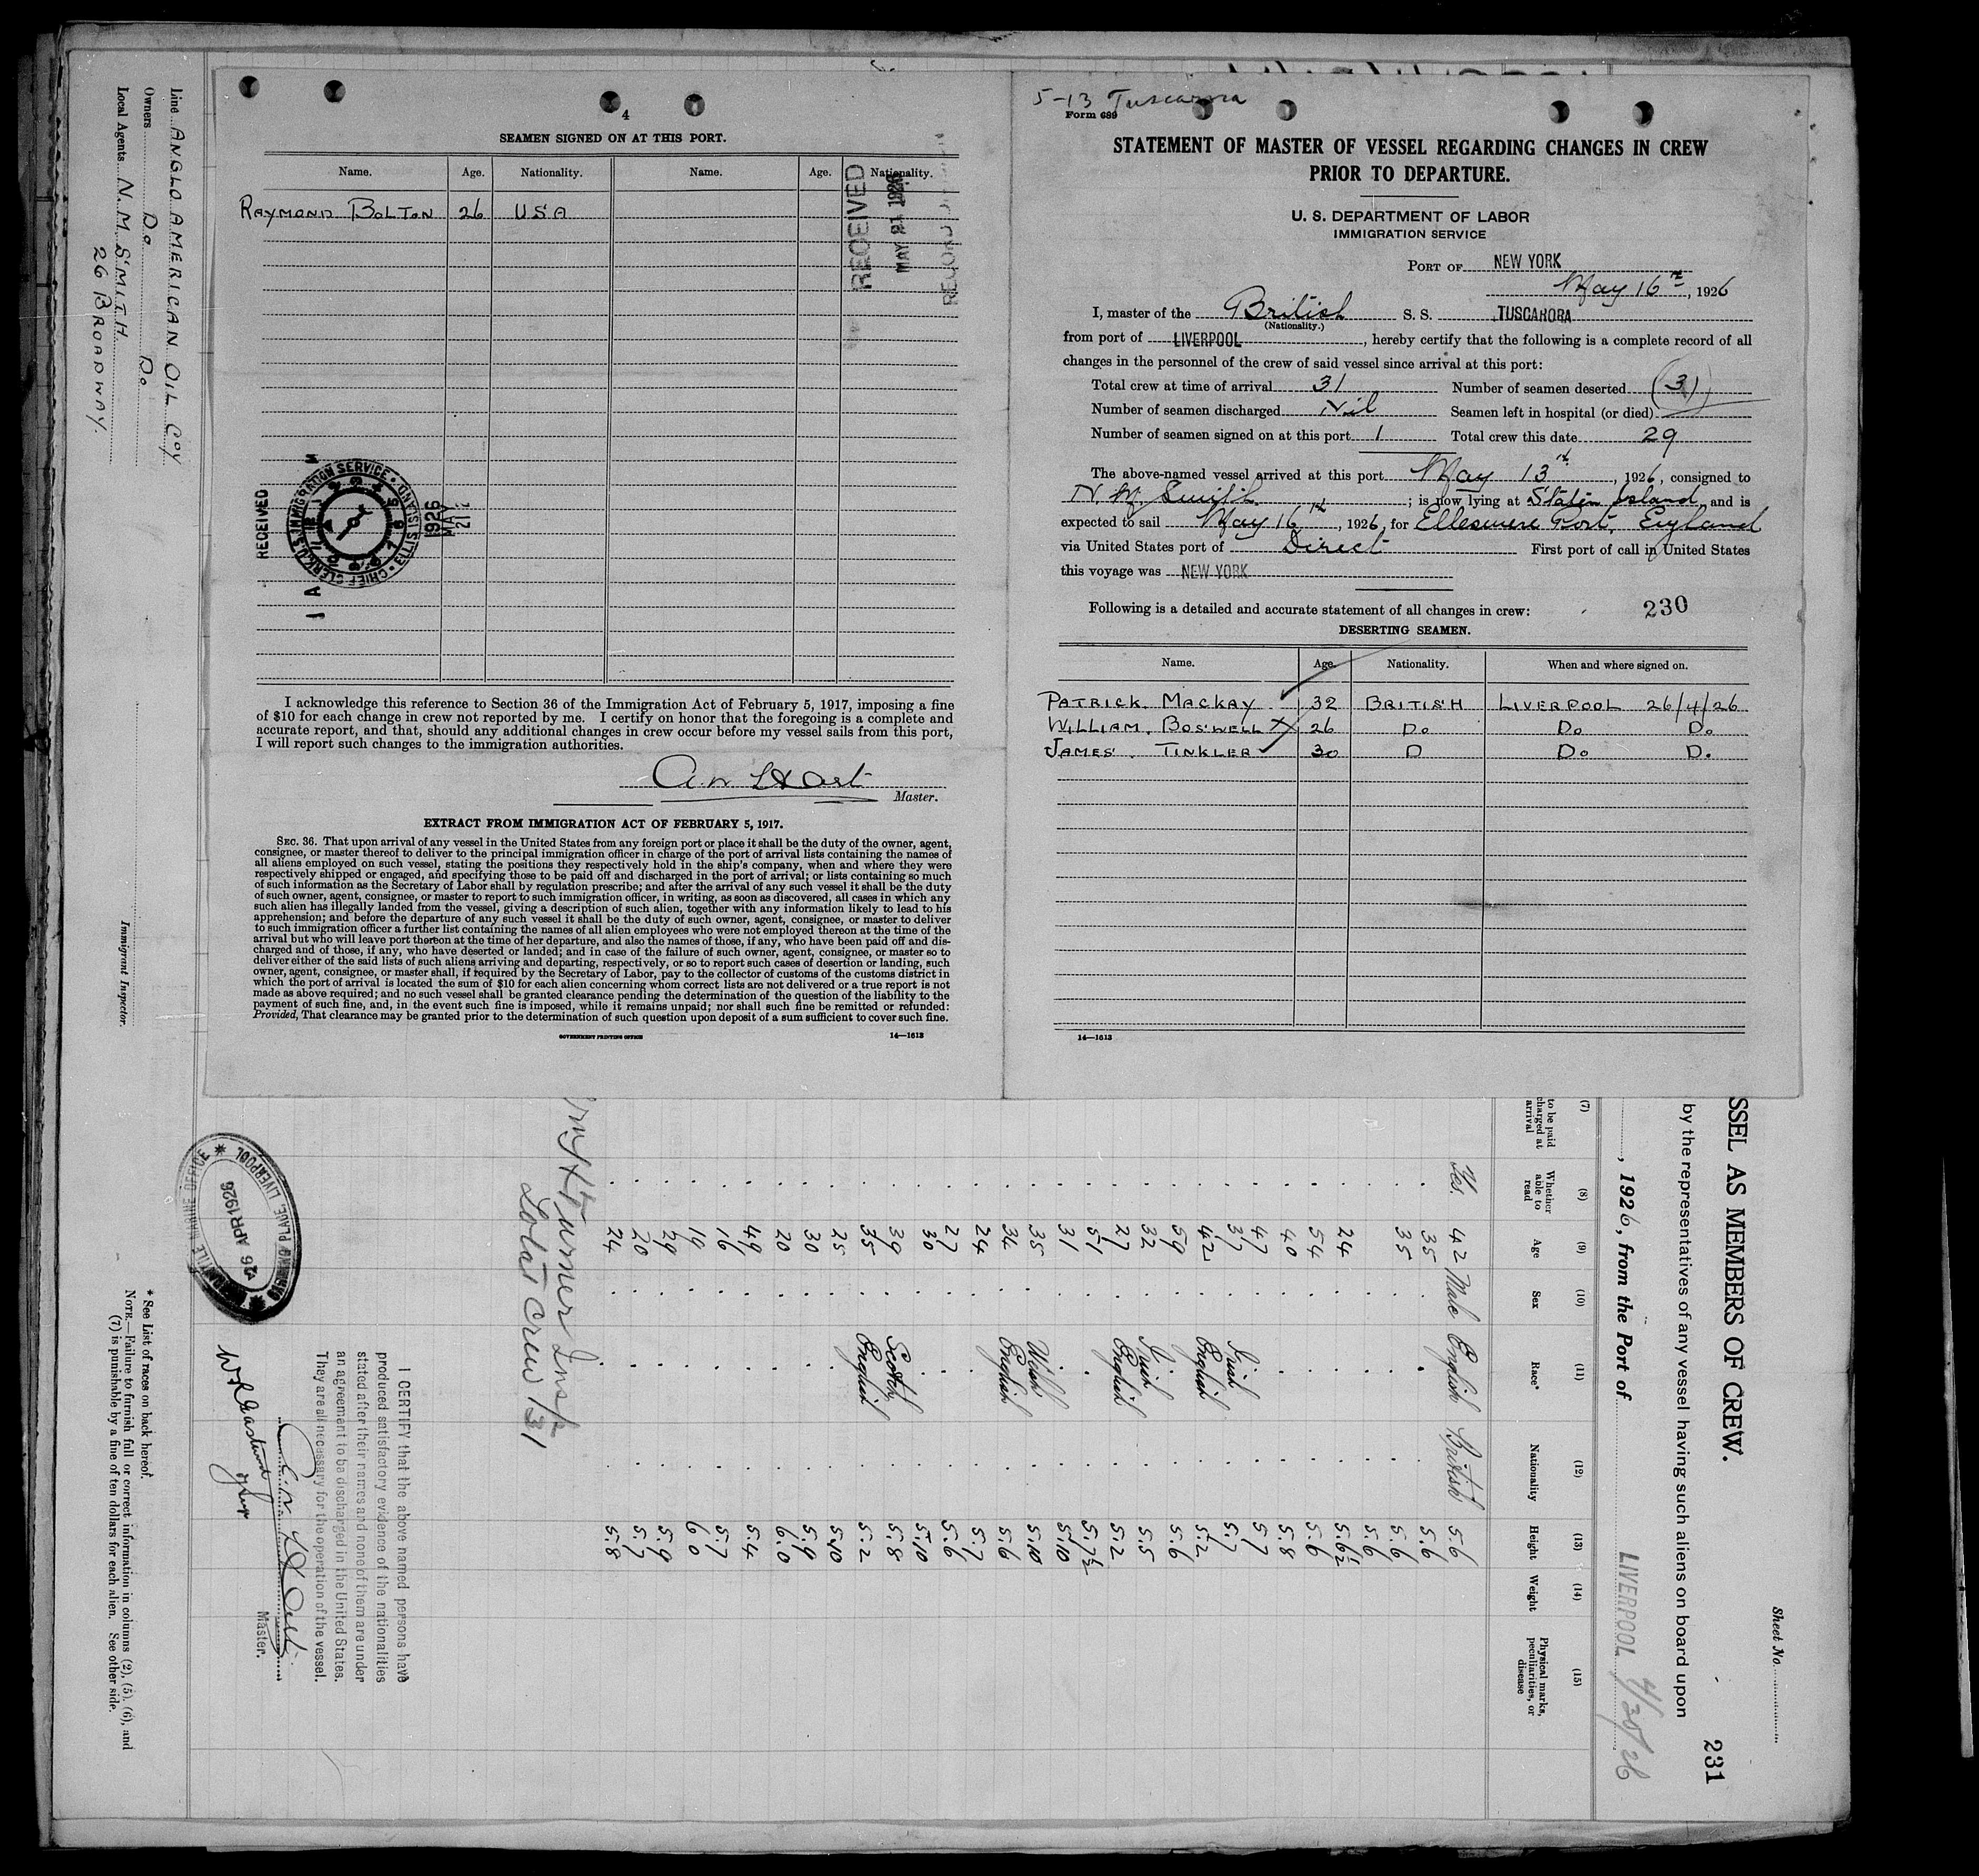 4
SEAMEN SIGNED ON AT THIS PORT.
Name. Age. Nationality. Name. Age. Nationality.
RAYMOND BOLTON 26 USA
RECEIVED
MAY 21 1926
RECORD
RECEIVED
1926 MAY 21
U.S. IMMIGRATION SERVICE • ELLIS ISLAND • CHIEF CLERK
I acknowledge this reference to Section 36 of the Immigration Act of February 5, 1917, imposing a fine
of $10 for each change in crew not reported by me. I certify on honor that the foregoing is a complete and
accurate report, and that, should any additional changes in crew occur before my vessel sails from this port,
I will report such changes to the immigration authorities.
Master.
EXTRACT FROM IMMIGRATION ACT OF FEBRUARY 5, 1917.
SEC. 36. That upon arrival of any vessel in the United States from any foreign port or place it shall be the duty of the owner, agent,
consignee, or master thereof to deliver to the principal immigration officer in charge of the port of arrival lists containing the names of
all aliens employed on such vessel, stating the positions they respectively hold in the ship's company, when and where they were
respectively shipped or engaged, and specifying those to be paid off and discharged in the port of arrival; or lists containing so much
of such information as the Secretary of Labor shall by regulation prescribe; and after the arrival of any such vessel it shall be the duty
of such owner, agent, consignee, or master to report to such immigration officer, in writing, as soon as discovered, all cases in which any
such alien has illegally landed from the vessel, giving a description of such alien, together with any information likely to lead to his
apprehension; and before the departure of any such vessel it shall be the duty of such owner, agent, consignee, or master to deliver
to such immigration officer a further list containing the names of all alien employees who were not employed thereon at the time of the
arrival but who will leave port thereon at the time of her departure, and also the names of those, if any, who have been paid off and dis-
charged and of those, if any, who have deserted or landed; and in case of the failure of such owner, agent, consignee, or master so to
deliver either of the said lists of such aliens arriving and departing, respectively, or so to report such cases of desertion or landing, such
owner, agent, consignee, or master shall, if required by the Secretary of Labor, pay to the collector of customs of the customs district in
which the port of arrival is located the sum of $10 for each alien concerning whom correct lists are not delivered or a true report is not
made as above required; and no such vessel shall be granted clearance pending the determination of the question of the liability to the
payment of such fine, and, in the event such fine is imposed, while it remains unpaid; nor shall such fine be remitted or refunded:
Provided, That clearance may be granted prior to the determination of such question upon deposit of a sum sufficient to cover such fine.
GOVERNMENT PRINTING OFFICE 14—1613
5-13 Tuscarora
Form 689
STATEMENT OF MASTER OF VESSEL REGARDING CHANGES IN CREW
PRIOR TO DEPARTURE.
U. S. DEPARTMENT OF LABOR
IMMIGRATION SERVICE
PORT OF NEW YORK
May 16th, 1926
I, master of the British S. S. TUSCARORA
(Nationality.)
from port of LIVERPOOL, hereby certify that the following is a complete record of all
changes in the personnel of the crew of said vessel since arrival at this port:
Total crew at time of arrival 31 Number of seamen deserted (3)
Number of seamen discharged Nil Seamen left in hospital (or died)
Number of seamen signed on at this port 1 Total crew this date 29
The above-named vessel arrived at this port May 13th, 1926, consigned to
N M Smith; is now lying at Staten Island, and is
expected to sail May 16th, 1926, for Ellesmere Port, England
via United States port of Direct First port of call in United States
this voyage was NEW YORK
Following is a detailed and accurate statement of all changes in crew: 230
DESERTING SEAMEN.
Name. Age. Nationality. When and where signed on.
PATRICK MACKAY 32 BRITISH LIVERPOOL 26/4/26
WILLIAM. BOSWELL X 26 Do Do Do
JAMES. TINKLER 30 D Do D.
14—1613
Line ANGLO AMERICAN OIL COY
Owners Do Do
Local Agents N. M SMITH.
26 BROADWAY.
Immigrant Inspector.
Sheet No.
231
SSEL AS MEMBERS OF CREW.
by the representatives of any vessel having such aliens on board upon
, 1926, from the Port of LIVERPOOL 4/30/26
(7) (8) (9) (10) (11) (12) (13) (14) (15)
to be paid charged at arrival
Whether able to read
Age
Sex
Race*
Nationality
Height
Weight
Physical marks, peculiarities, or disease
Yes. 42 Male English British 5.6
35 5.6
35 5.6
5.6
24 5.6½
54 5.6
40 5.8
47 5.7
37 Irish 5.7
42 English 5.2
59 5.6
32 Irish 5.5
27 English 5.2
51 5.7½
31 5.10
35 Welsh 5.10
34 English 5.6
24 5.7
27 5.6
30 5.10
39 Scotch 5.8
35 English 5.2
25 5.10
30 5.9
20 6.0
49 5.4
16 5.7
19 6.0
29 5.9
20 5.7
24 5.8
Turner Inst
Total Crew 31
I CERTIFY that the above named persons have
produced satisfactory evidence of the nationalities
stated after their names and none of them are under
an agreement to be discharged in the United States.
They are all necessary for the operation of the vessel.
Master.
MERCANTILE MARINE OFFICE
26 APR 1926
CANNING PLACE, LIVERPOOL
* See List of races on back hereof.
NOTE.—Failure to furnish full or correct information in columns (2), (5), (6), and
(7) is punishable by a fine of ten dollars for each alien. See other side.